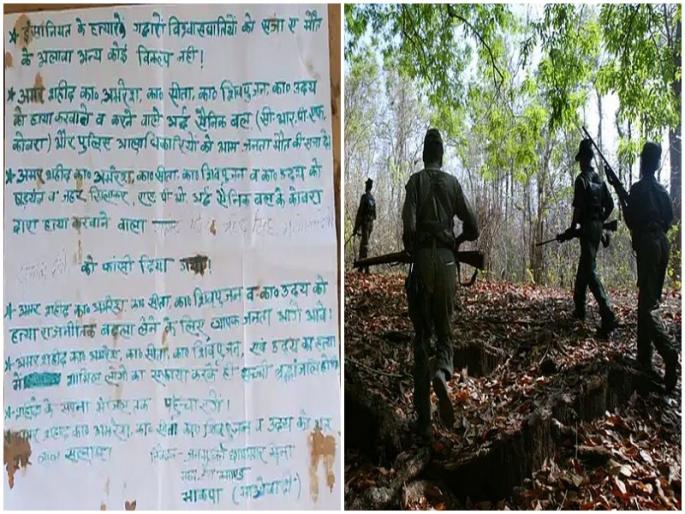 ★ इंसानियत के हत्यारे गद्दारों विश्वासघातियों को सजा ए मौत
के अलावा अन्य कोई विकल्प नहीं!
★ अमर शहीद का० अमरेश, का० सीता, का० शिवपुजन, का० उदय
की हत्या करवाने व करने वाले अर्द्ध सैनिक बल (सी० आर० पी० एफ,
कोबरा) और पुलिस आला धिकारियों को आम जनता मौत की सजा दे।
★ अमर शहीद का० अमरेश, का० सीता, का० शिवपुजन व का० उदय को
षडयंत्र व जहर खिलाकर, एस० पी० ओ० अर्द्ध सैनिक बल के कोबरा
द्वारा हत्या करवाने वाला
को फांसी दिया गया!
★ अमर शहीद का० अमरेश, का० सीता, का० शिवपुजन व का० उदय की
हत्या राजनीतिक बदला लेने के लिए व्यापक जनता आगे आवें!
★ अमर शहीद का० अमरेश, का० सीता, का० शिवपुजन, एवं उदय का हत्या
में शामिल लोगों का सफाया करके ही सच्ची श्रद्धांजलि
★ शहीदों के सपना मंजिल तक पहुँचाएंगे!
अमर शहीद का० अमरेश, का० सीता का० शिवपुजन व उदय को
लाल सलाम
सेना
भाकपा (माओवादी)